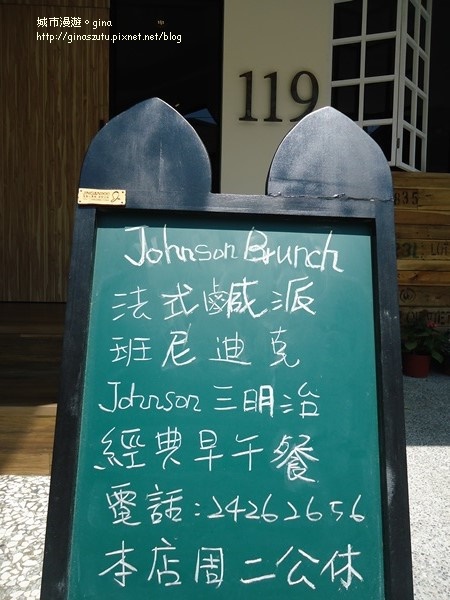 城市漫遊。gina
http://ginaszutu.pixnet.net/blog
119
Johnson Brunch
法式鹹派
班尼迪克
Johnson 三明治
經典早午餐
電話:24262656
本店周二公休